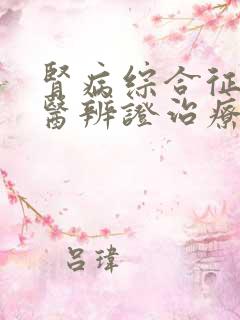 腎病綜合征
醫辨證治療
吕瑋